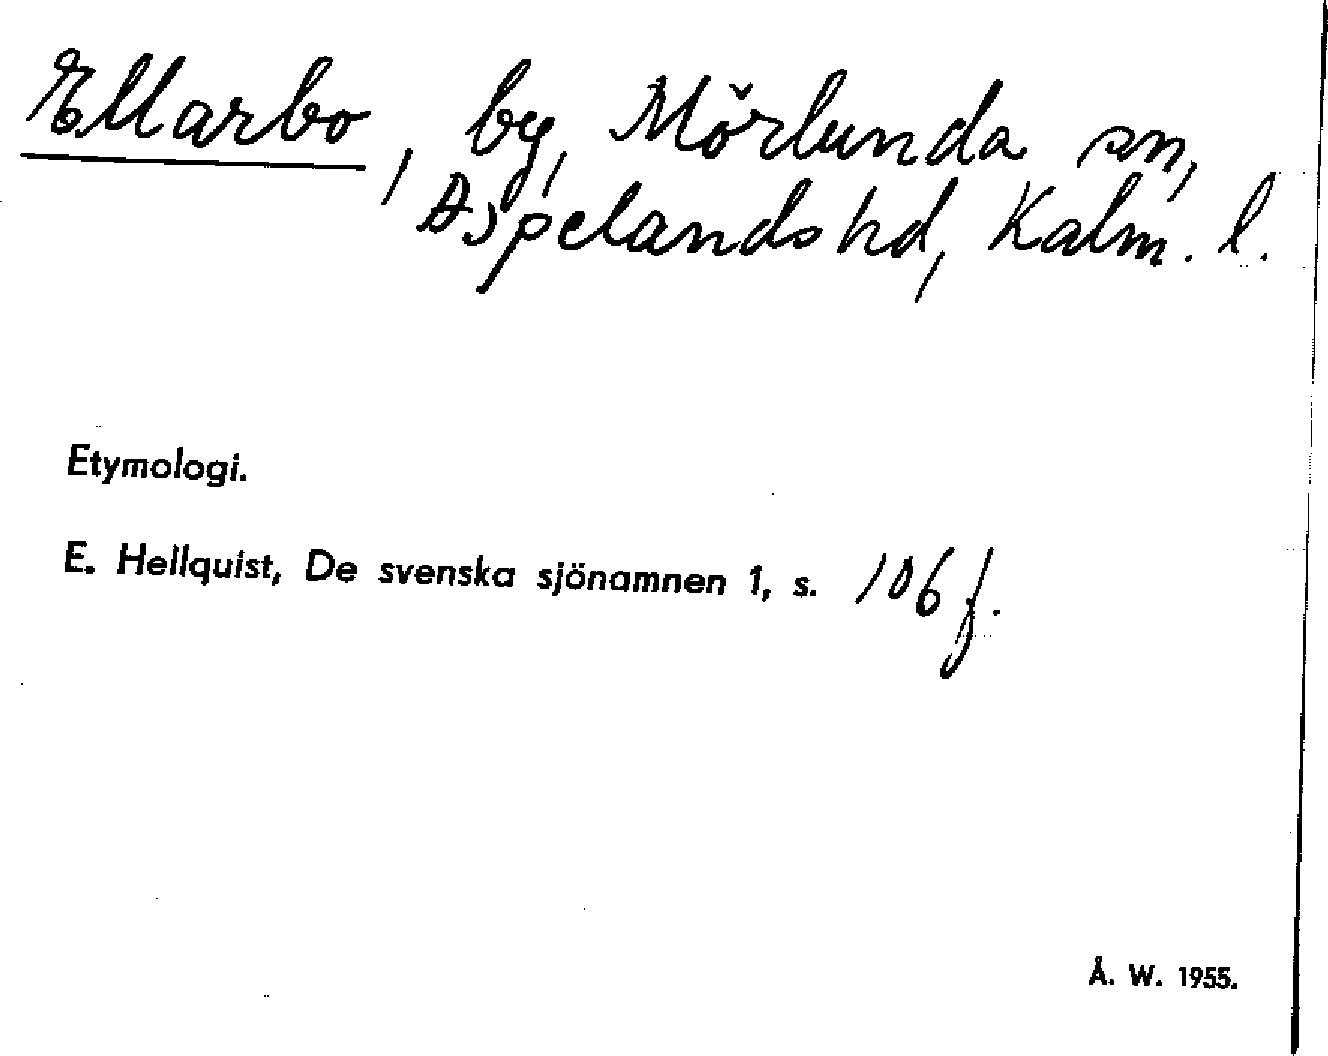 Ellarbo, by, Mörlunda sn,
Aspelands hd, Kalm. l.
Etymologi.
E. Hellquist, De svenska sjönamnen 1, s. 106 f.
Å. W. 1955.